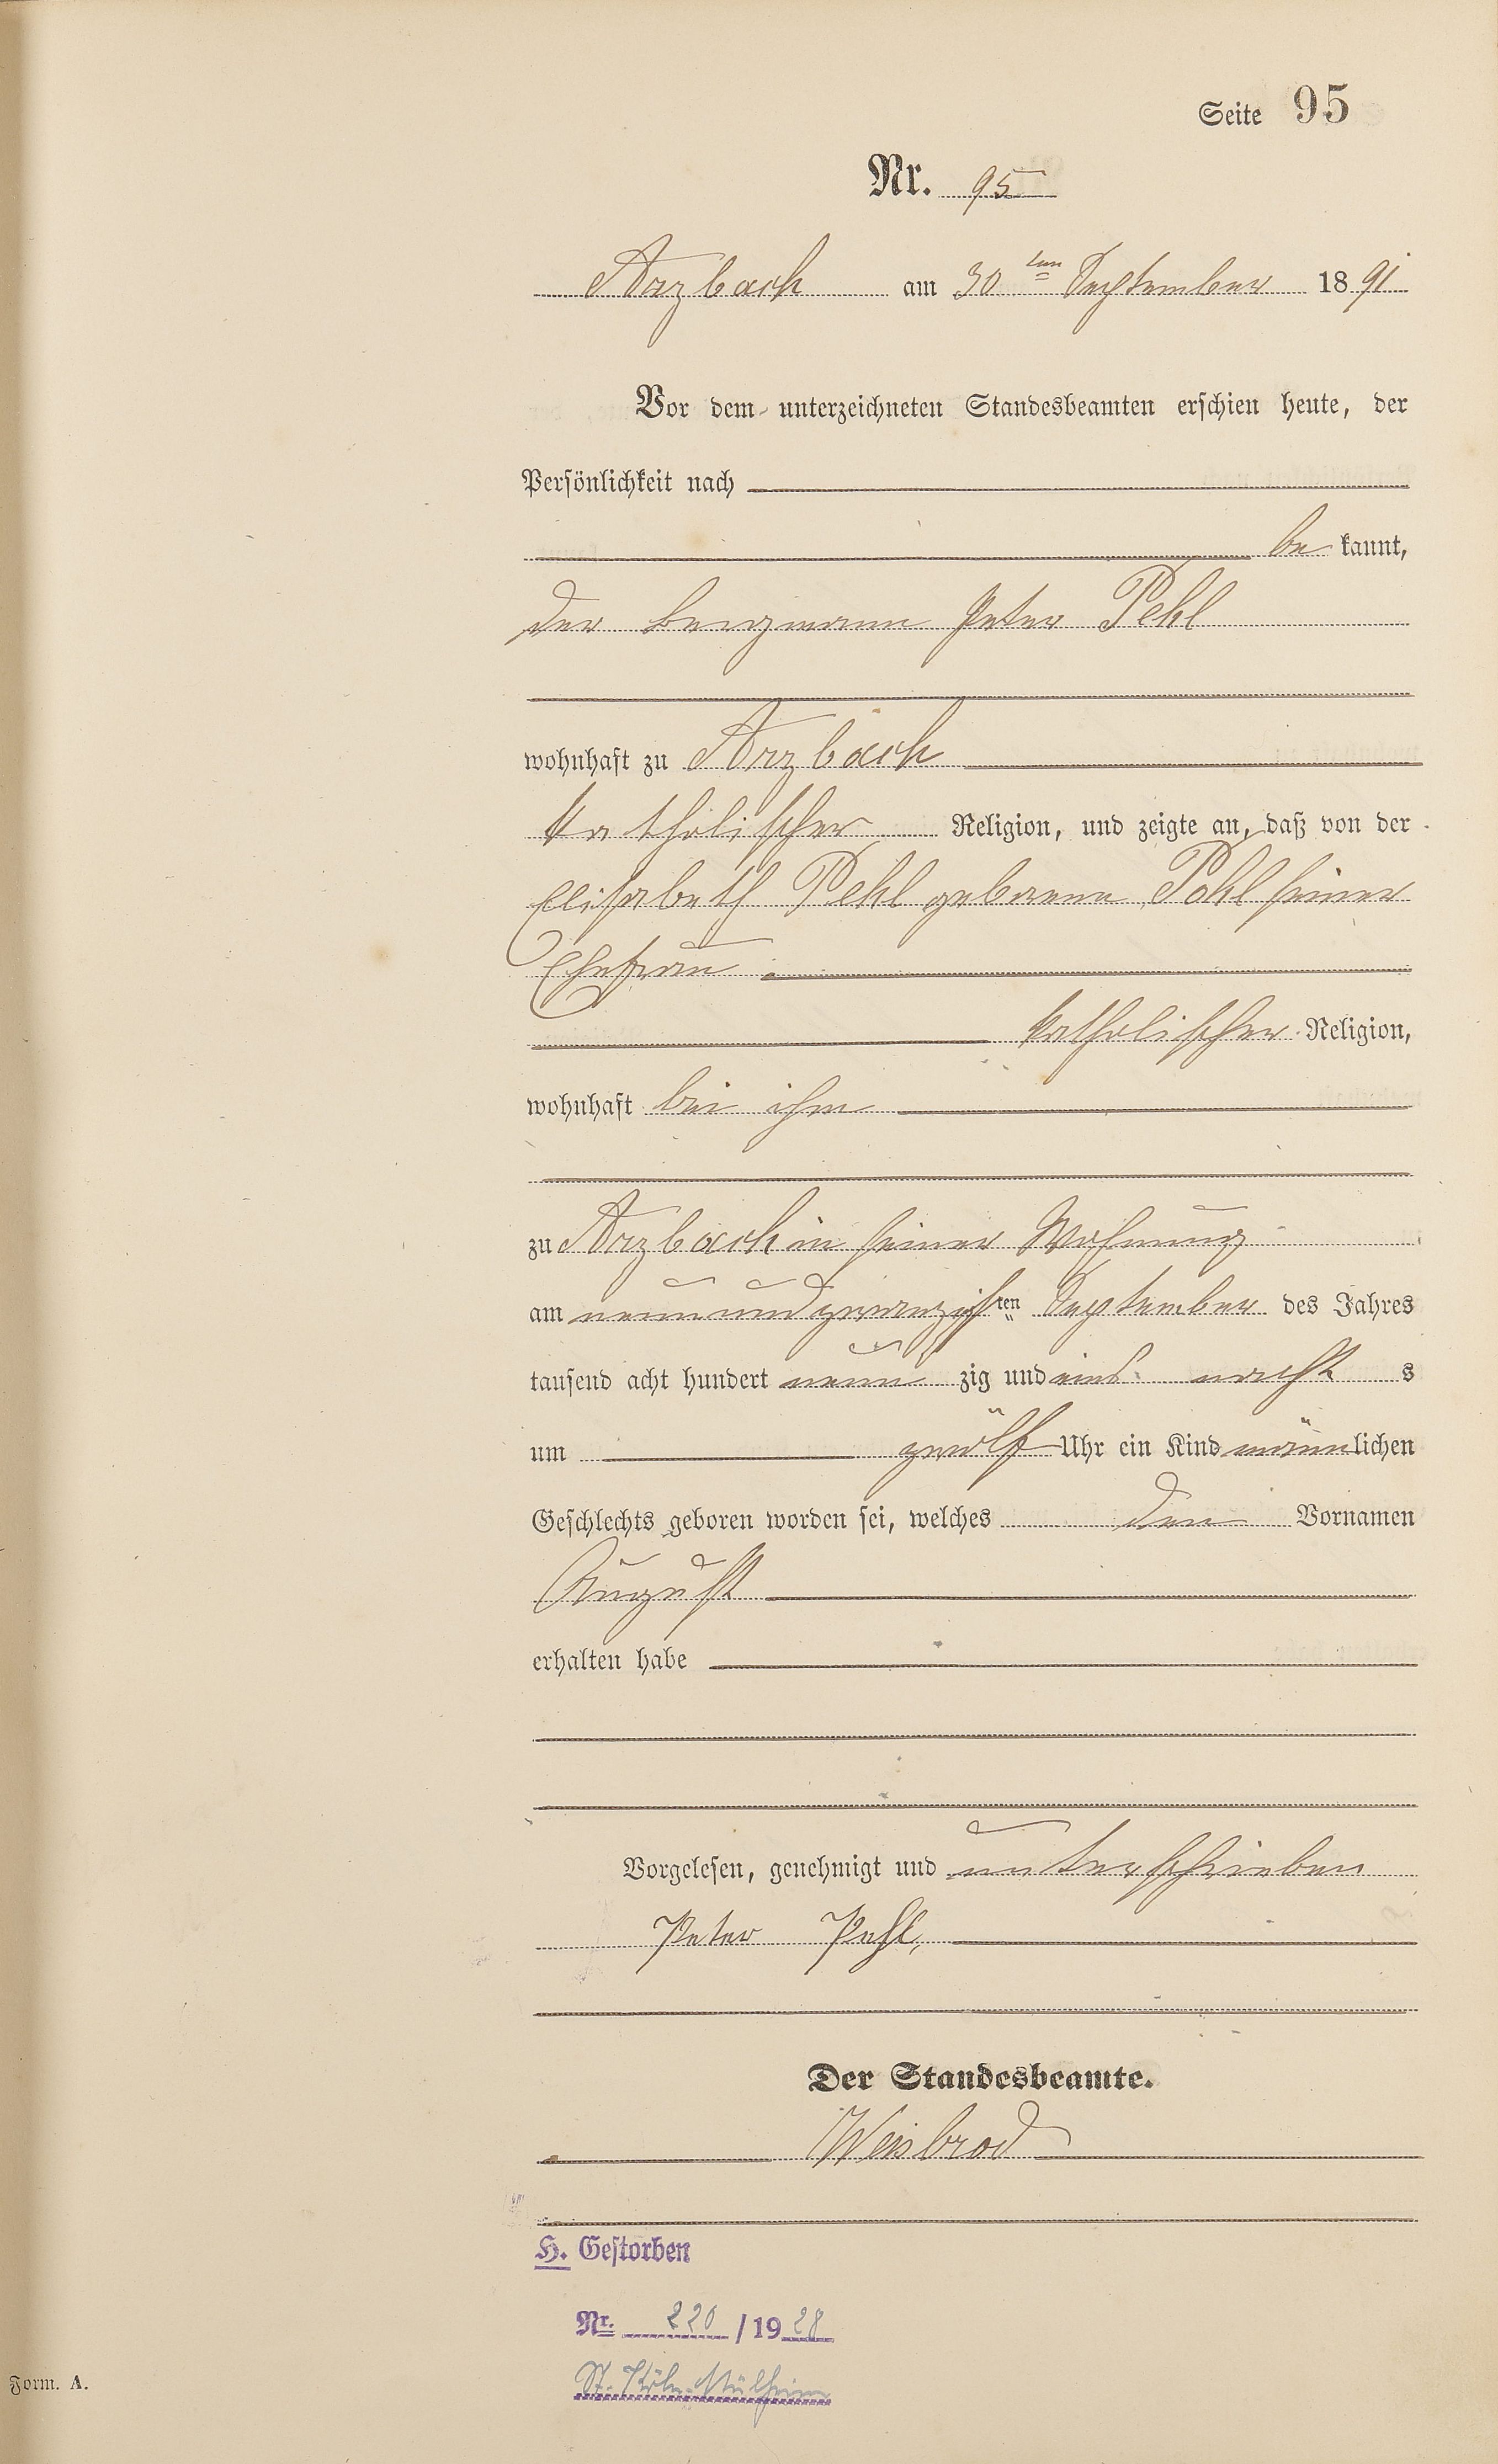 Seite 95
Nr. 95
Arzbach am 30ten September 1891
Vor dem unterzeichneten Standesbeamten erschien heute, der
Persönlichkeit nach
be kannt,
der Bergmann Peter Pehl
wohnhaft zu Arzbach
katholischer Religion, und zeigte an, daß von der
Elisabeth Pehl geborene Pohl seiner
Ehefrau
katholischer Religion,
wohnhaft bei ihm
zu Arzbach in seiner Wohnung
am neunundzwanzigsten September des Jahres
tausend acht hundert neun zig und eins nacht s
um zwölf Uhr ein Kind männlichen
Geschlechts geboren worden sei, welches den Vornamen
August
erhalten habe
Vorgelesen, genehmigt und unterschrieben
Peter Pehl,
Der Standesbeamte.
Weisbrod
H. Gestorben
Nr. 220 / 1928
St. Köln-Mülheim
Form. A.